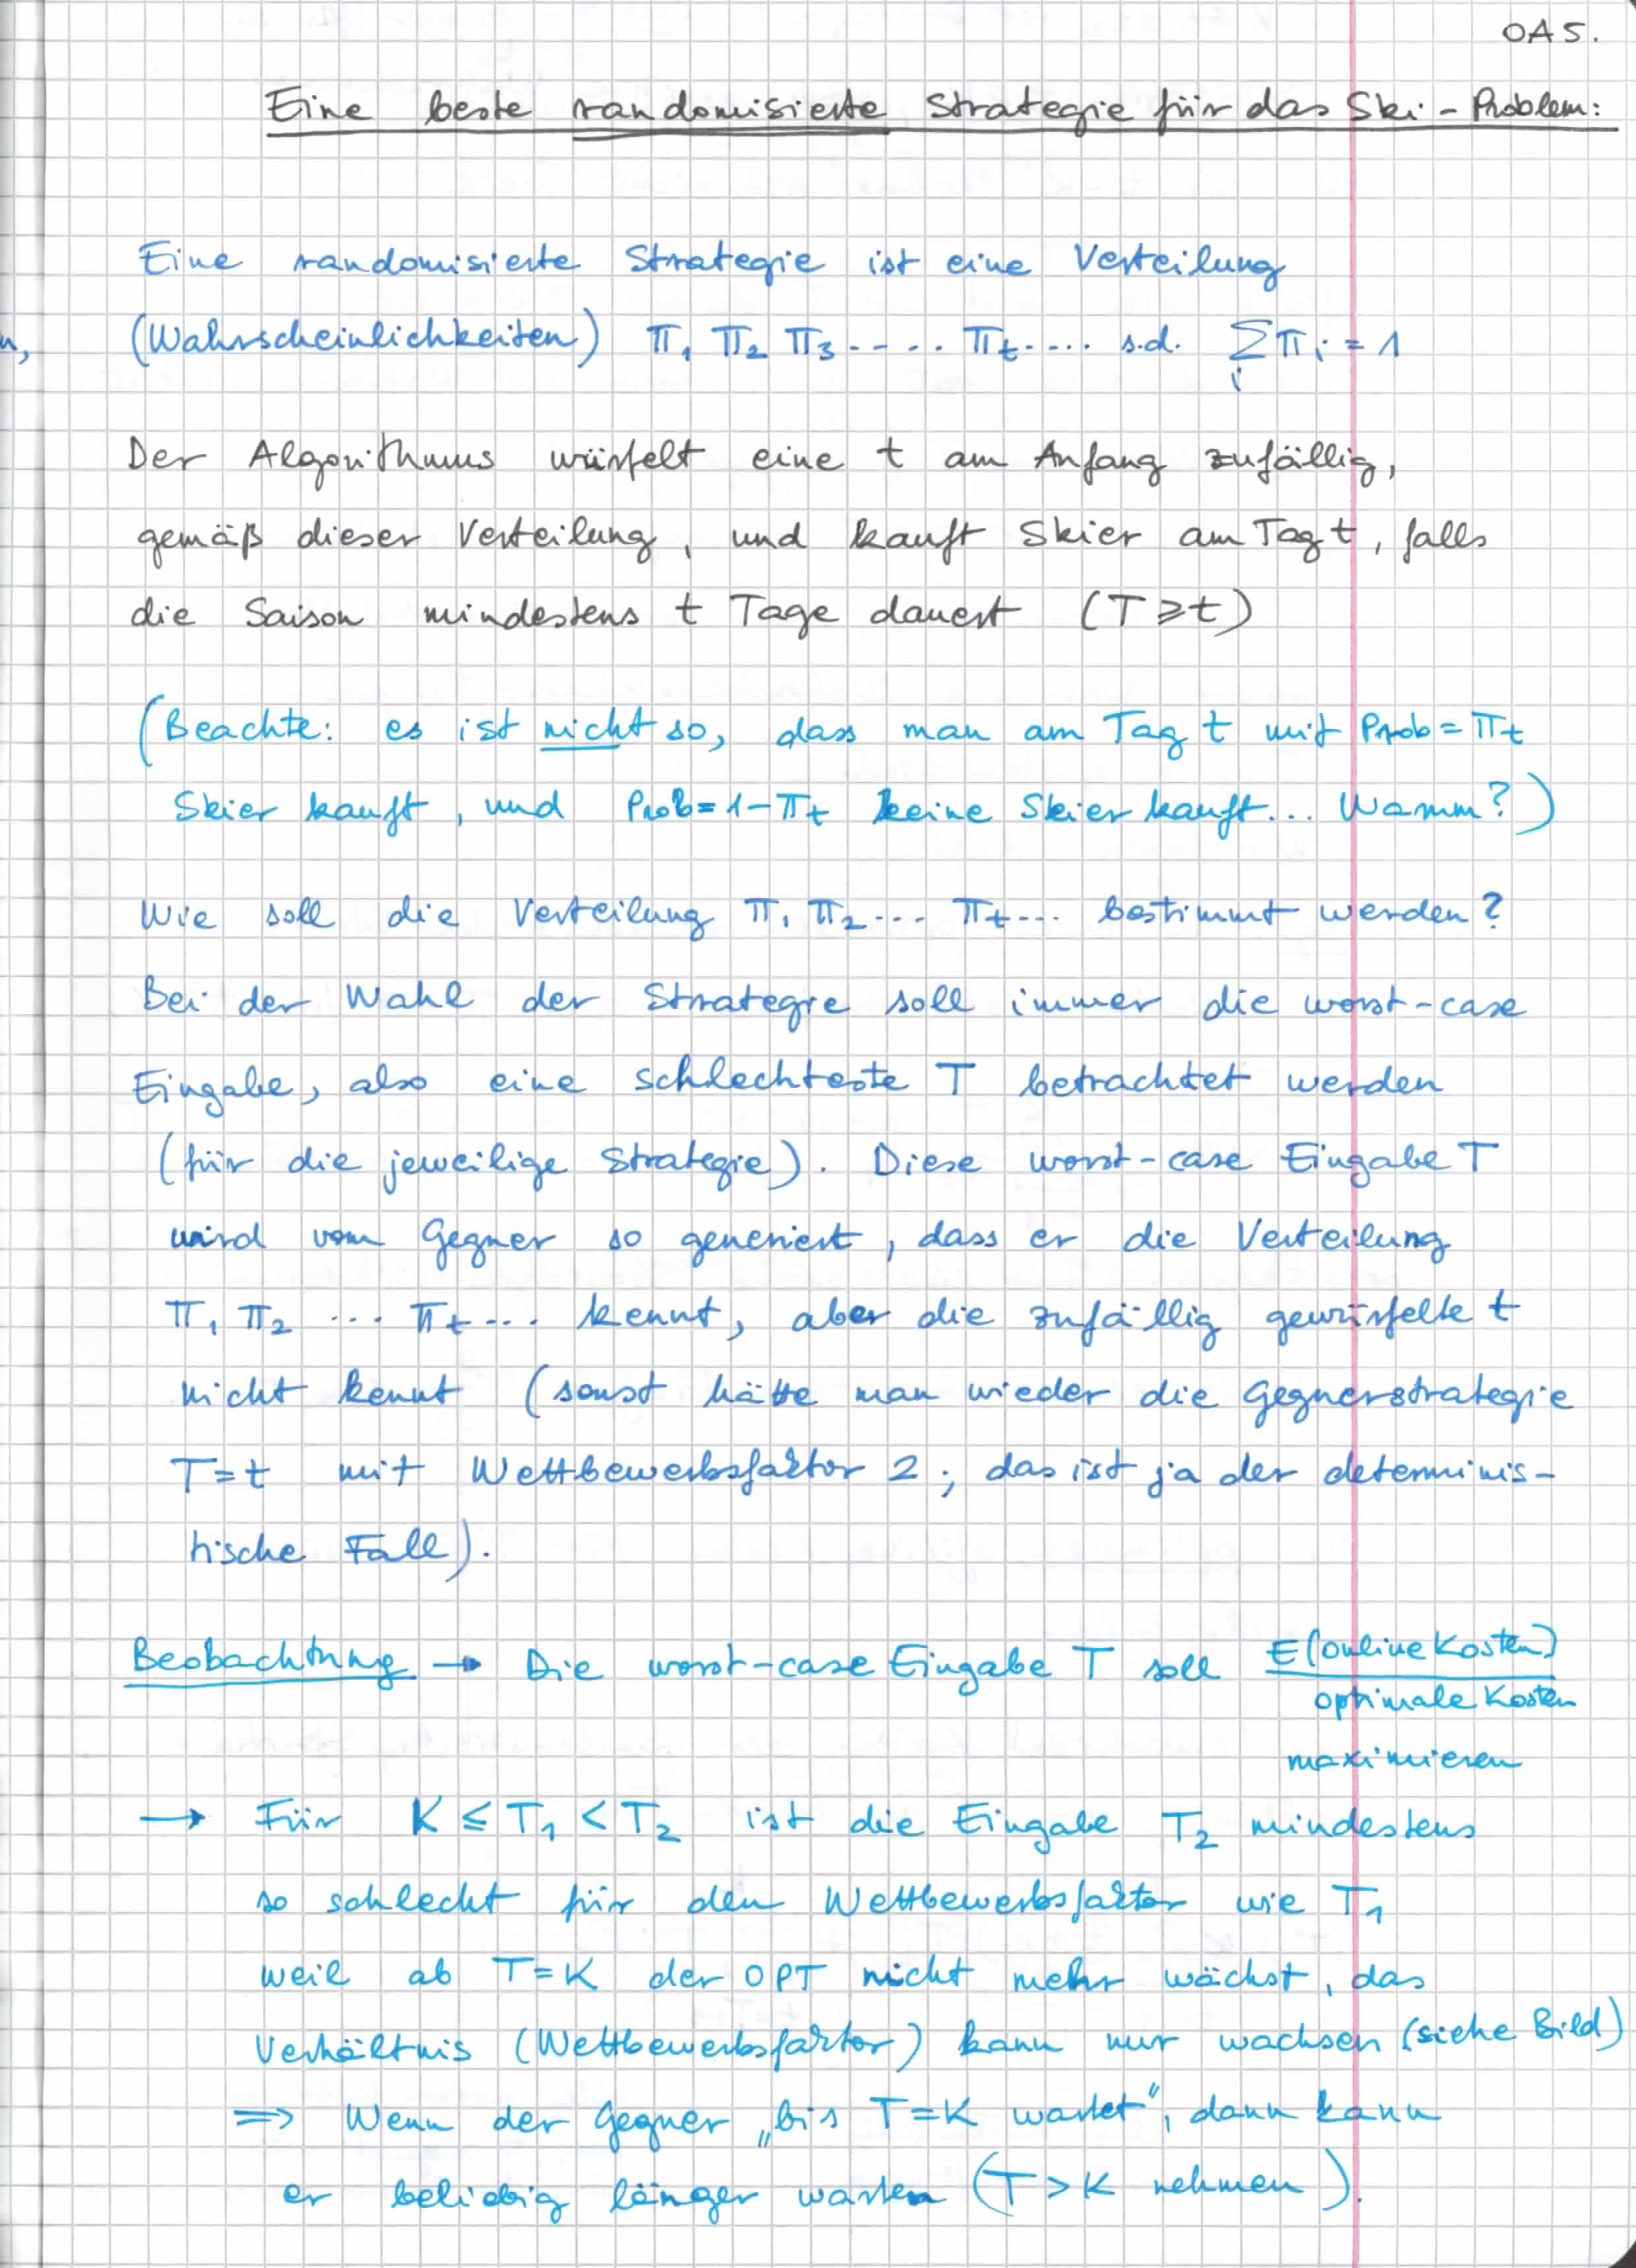 OA5.
Eine beste randomisierte Strategie für das Ski-Problem:
Eine randomisierte Strategie ist eine Verteilung
(Wahrscheinlichkeiten) π₁ π₂ π₃ ..... π_t .... s.d. ∑_i π_i = 1
Der Algorithmus würfelt eine t am Anfang zufällig,
gemäß dieser Verteilung, und kauft Skier am Tag t, falls
die Saison mindestens t Tage dauert (T ≥ t)
(Beachte: es ist nicht so, dass man am Tag t mit Prob = π_t
Skier kauft, und Prob = 1-π_t keine Skier kauft... Warum?)
Wie soll die Verteilung π₁ π₂ ... π_t ... bestimmt werden?
Bei der Wahl der Strategie soll immer die worst-case
Eingabe, also eine schlechteste T betrachtet werden
(für die jeweilige Strategie). Diese worst-case Eingabe T
wird vom Gegner so generiert, dass er die Verteilung
π₁ π₂ ... π_t ... kennt, aber die zufällig gewürfelte t
nicht kennt (sonst hätte man wieder die Gegnerstrategie
T=t mit Wettbewerbsfaktor 2; das ist ja der determinis-
tische Fall).
Beobachtung → Die worst-case Eingabe T soll E(online Kosten)
optimale Kosten
maximieren
→ Für K ≤ T₁ < T₂ ist die Eingabe T₂ mindestens
so schlecht für den Wettbewerbsfaktor wie T₁
weil ab T=K der OPT nicht mehr wächst, das
Verhältnis (Wettbewerbsfaktor) kann nur wachsen (siehe Bild)
⇒ Wenn der Gegner „bis T=K wartet", dann kann
er beliebig länger warten (T>K nehmen).